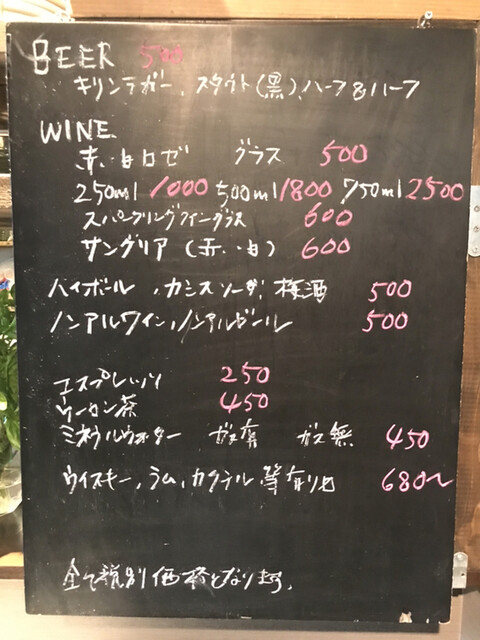 BEER 500
キリンラガー、スタウト(黒)、ハーフ&ハーフ
WINE
赤・白ロゼ グラス 500
250ml 1000 500ml 1800 750ml 2500
スパークリングワイングラス 600
サングリア(赤・白) 600
ハイボール、カシスソーダ、梅酒 500
ノンアルワイン、ノンアルビール 500
エスプレッソ 250
ウーロン茶 450
ミネラルウォーター ガス有 ガス無 450
ウイスキー、ラム、カクテル等有りマス 680〜
全て税別価格となります。